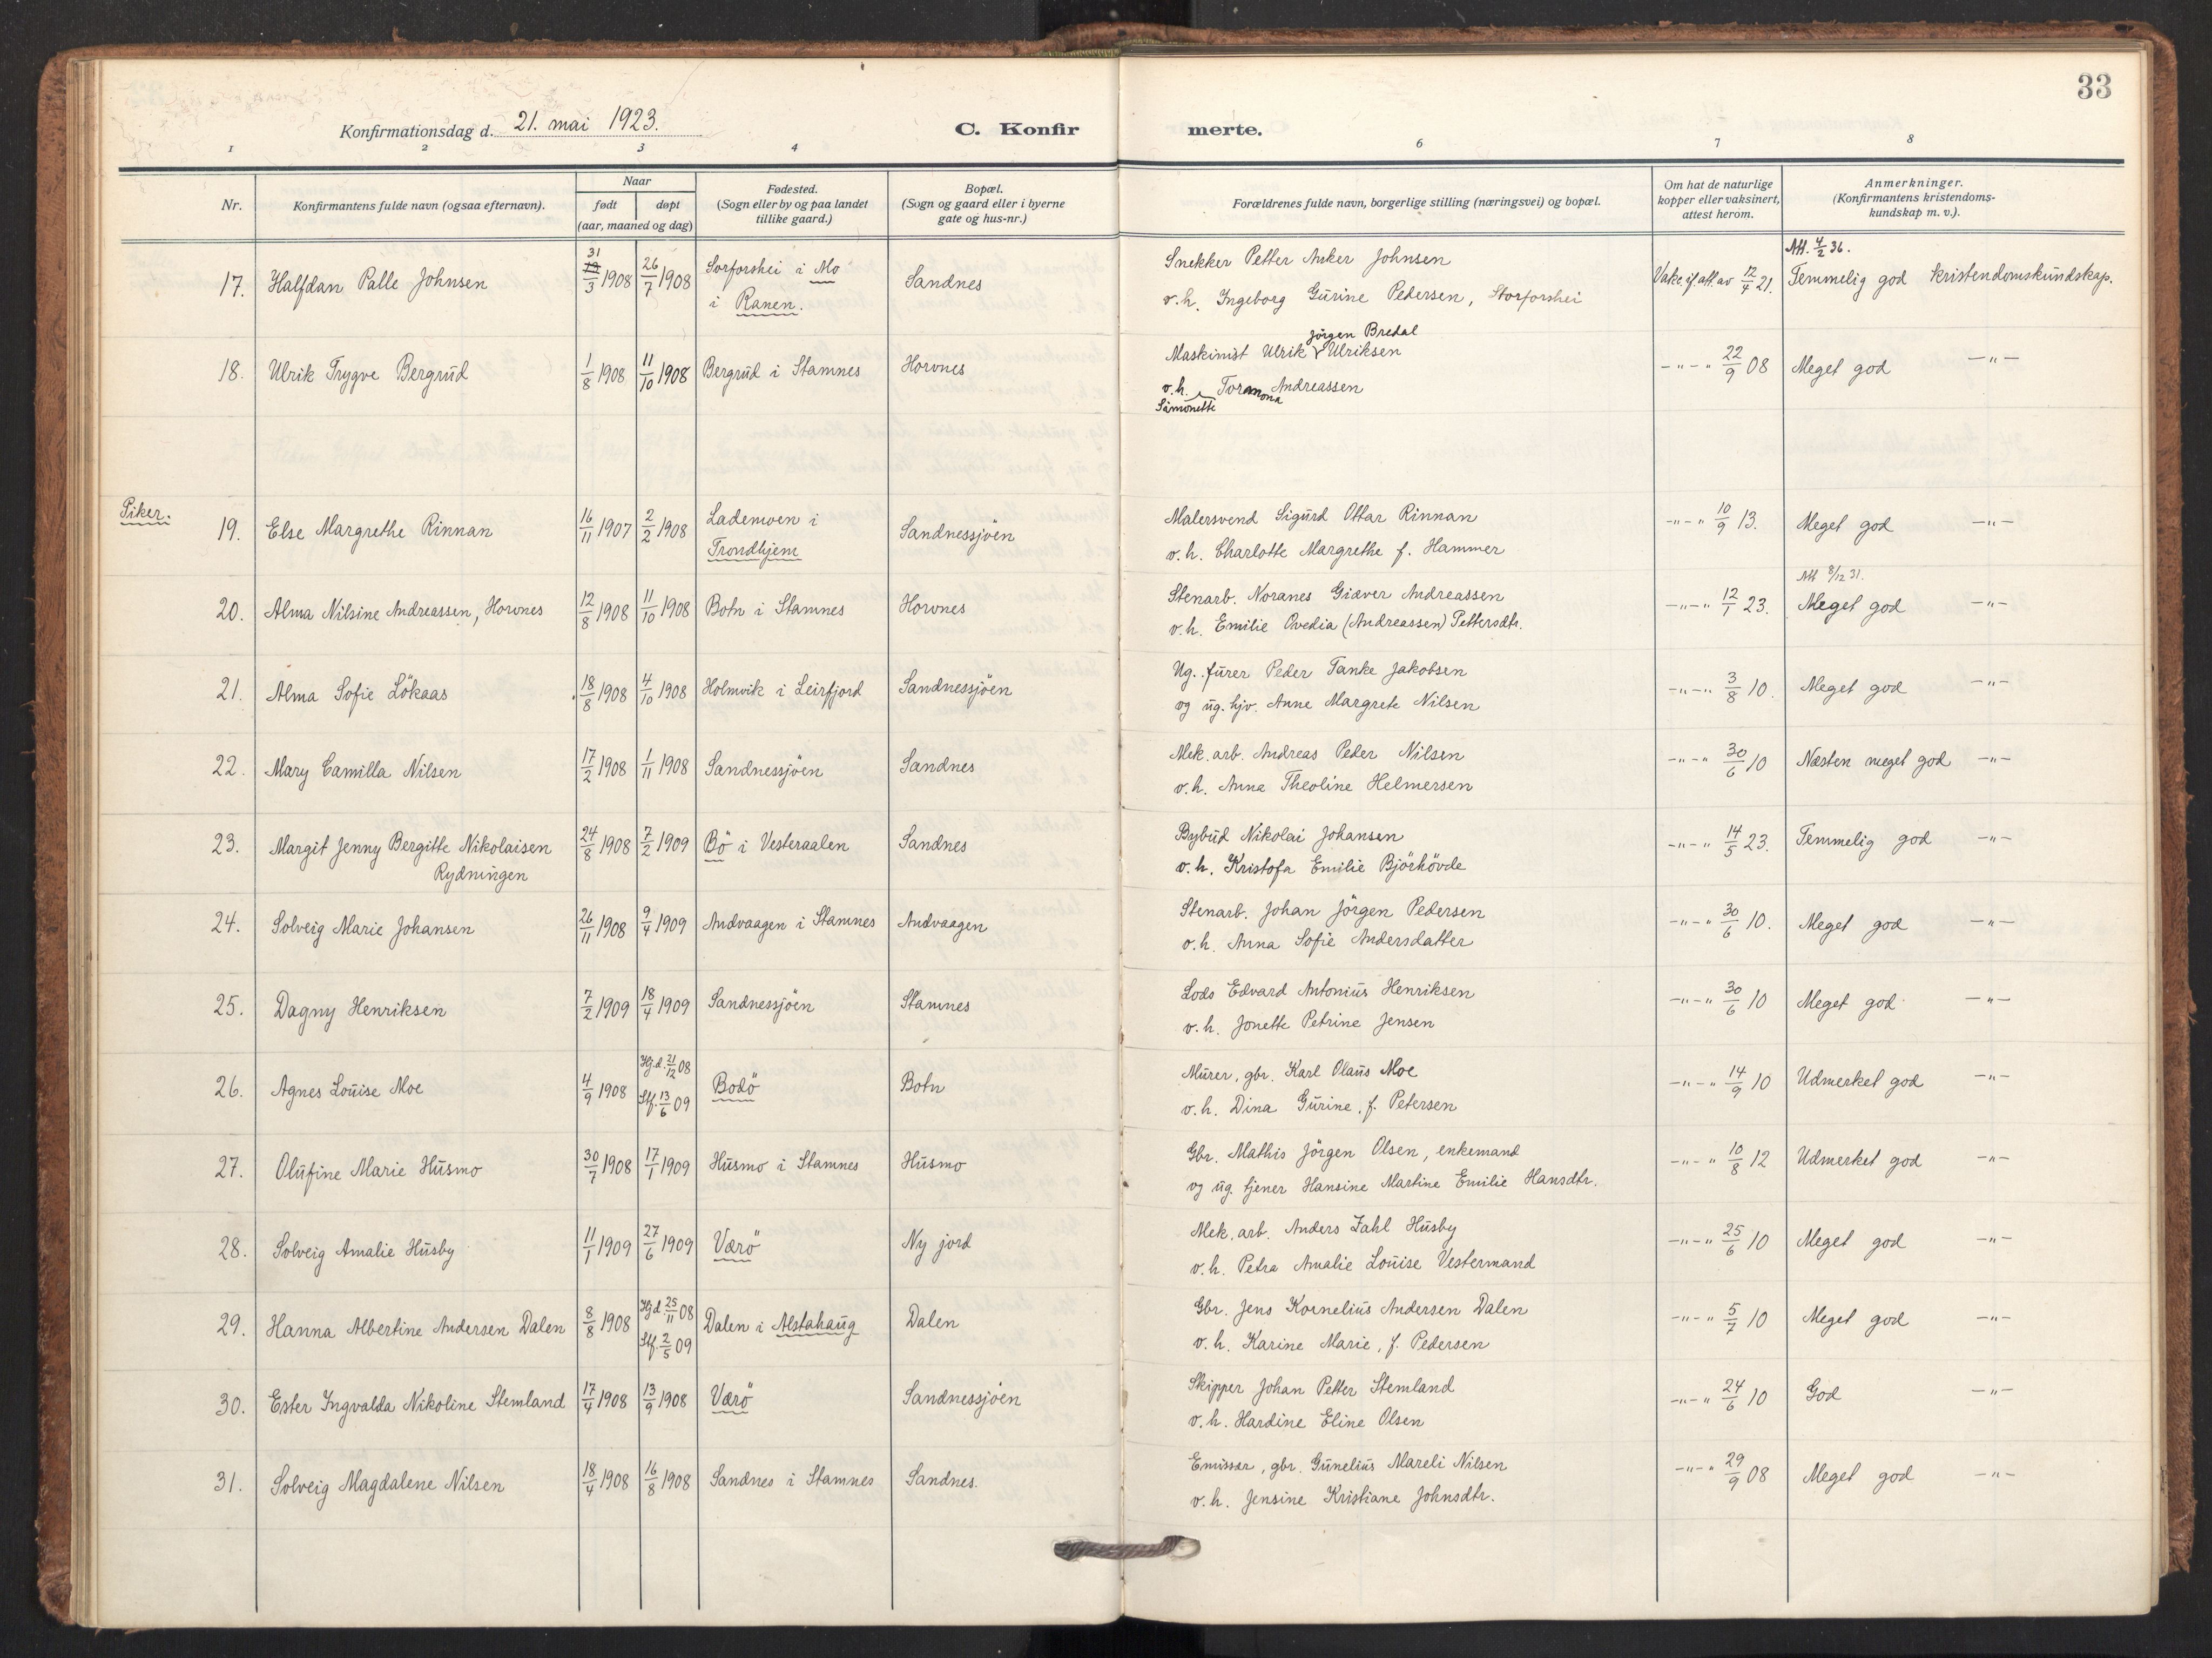 33
Konfirmationsdag d. 21. mai 1923.
C. Konfir
merte.
1 2 3 4 6 7 8
Nr.
Konfirmantens fulde navn (ogsaa efternavn).
Naar
født
døpt
(aar, maaned og dag)
Fødested.
(Sogn eller by og paa landet
tillike gaard.)
Bopæl.
(Sogn og gaard eller i byerne
gate og hus-nr.)
Forældrenes fulde navn, borgerlige stilling (næringsvei) og bopæl.
Om hat de naturlige
kopper eller vaksinert,
attest herom.
Anmerkninger.
(Konfirmantens kristendoms-
kundskap m. v.).
Att. 4/2 36.
17. Halfdan Palle Johnsen 31/3 1908 26/7 1908 Sorforshei i Mo Sandnes Snekker Petter Anker Johnsen Vakc. if. att. av 12/4 21. Temmelig god kristendomskundskap.
i Ranen. v. h. Ingeborg Gurine Pedersen, Storforshei
Jörgen Bredal
18. Ulrik Trygve Bergrud 1/8 1908 11/10 1908 Bergrud i Stamnes Horvnes Maskinist Ulrik Ulriksen -"-" 22/9 08 Meget god -"-
v. h. Toramona Andreassen
Simonette
Piker.
19. Else Margrethe Rinnan 16/11 1907 2/2 1908 Lademoen i Sandnessjöen Malersvend Sigurd Ottar Rinnan -"-" 10/9 13. Meget god -"-
Trondhjem v. h. Charlotte Margrethe f. Hammer
Att 8/12 31.
20. Alma Nilsine Andreassen, Horvnes 12/8 1908 11/10 1908 Botn i Stamnes Horvnes Stenarb. Noranes Giæver Andreassen -"-" 12/1 23. Meget god -"-
v. h. Emilie Ovedia (Andreassen) Pettersdtr.
21. Alma Sofie Lökaas 18/8 1908 4/10 1908 Holmvik i Leirfjord Sandnessjöen Ug. furer Peder Tanke Jakobsen -"-" 3/8 10. Meget god -"-
og ug. hjv. Anne Margrete Nilsen
22. Mary Camilla Nilsen 17/2 1908 1/11 1908 Sandnessjöen Sandnes Mek. arb. Andreas Peder Nilsen -"-" 30/6 10 Næsten meget god -"-
v. h. Anna Theoline Helmersen
23. Margit Jenny Bergitte Nikolaisen 24/8 1908 7/2 1909 Bö i Vesteraalen Sandnes Bybud Nikolai Johansen -"-" 14/5 23. Temmelig god -"-
Rydningen v. h. Kristofa Emilie Björhövde
24. Solveig Marie Johansen 26/11 1908 9/4 1909 Andvaagen i Stamnes Andvaagen Stenarb. Johan Jörgen Pedersen -"-" 30/6 10. Meget god -"-
v. h. Anna Sofie Andersdatter
25. Dagny Henriksen 7/2 1909 18/4 1909 Sandnessjöen Stamnes Lods Edvard Antonius Henriksen -"-" 30/6 10 Meget god -"-
v. h. Jonette Petrine Jensen
26. Agnes Louise Moe 4/9 1908 Hj.d. 21/12 08 Bodö Botn Murer, gbr. Karl Olaus Moe -"-" 14/9 10 Udmerket god -"-
Stf. 13/6 09 v. h. Dina Gurine, f. Petersen
27. Olufine Marie Husmo 30/7 1908 17/1 1909 Husmo i Stamnes Husmo Gbr. Mathis Jörgen Olsen, enkemand -"-" 10/8 12 Udmerket god -"-
og ug. tjener Hansine Martine Emilie Hansdtr.
28. Solveig Amalie Husby 11/1 1909 27/6 1909 Værö Ny jord Mek. arb. Anders Zahl Husby -"-" 25/6 10 Meget god -"-
v. h. Petra Amalie Louise Vestermand
29. Hanna Albertine Andersen Dalen 8/8 1908 Hjd 25/11 08 Dalen i Alstahaug Dalen Gbr. Jens Kornelius Andersen Dalen -"-" 5/7 10 Meget god -"-
Stf. 2/5 09 v. h. Karine Marie, f. Pedersen
30. Ester Ingvalda Nikoline Stemland 17/4 1908 13/9 1908 Værö Sandnessjöen Skipper Johan Petter Stemland -"-" 24/6 10 God -"-
v. h. Hardine Eline Olsen
31. Solveig Magdalene Nilsen 18/4 1908 16/8 1908 Sandnes i Stamnes Sandnes. Emissær, gbr. Gunelius Mareli Nilsen -"-" 29/9 08 Meget god -"-
v. h. Jensine Kristiane Johnsdtr.